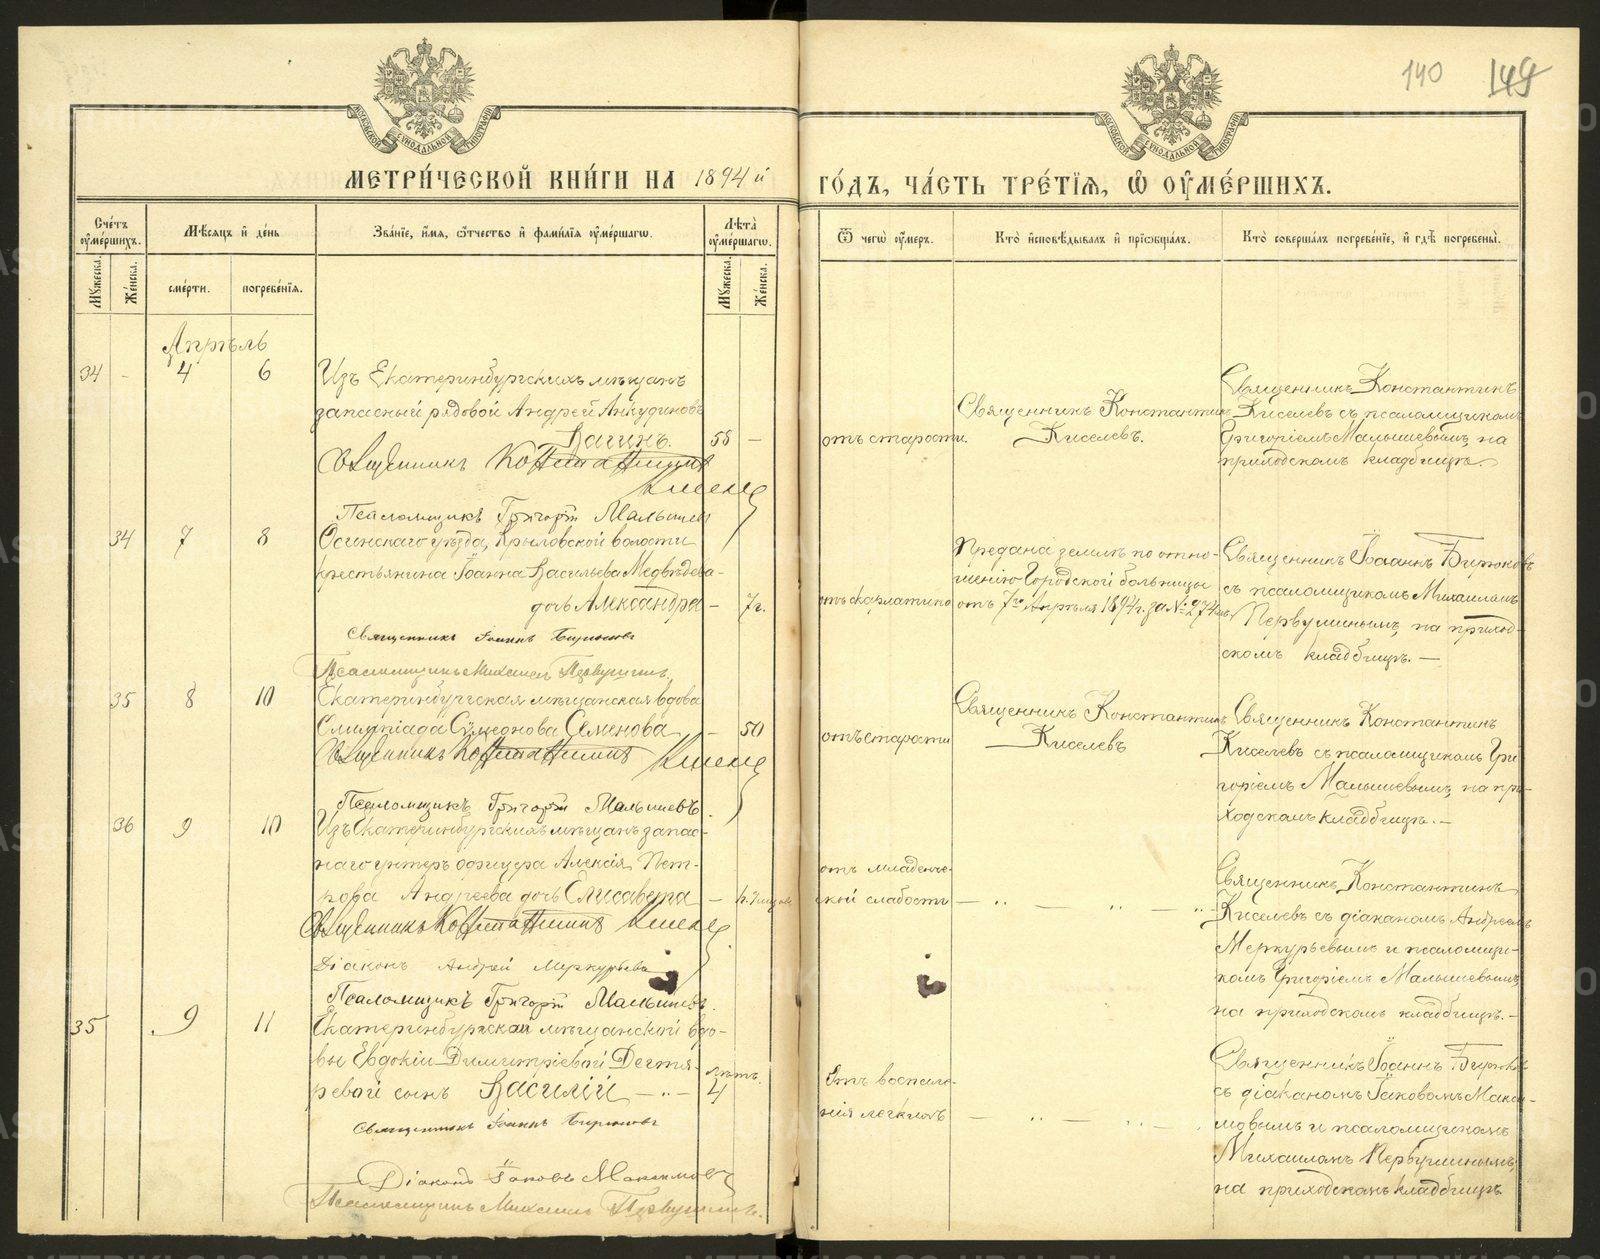 140 149
МОСКОВСКОЙ СѴНОДАЛЬНОЙ ТИПОГРАФІИ
МОСКОВСКОЙ СѴНОДАЛЬНОЙ ТИПОГРАФІИ
МЕТРИ́ЧЕСКОЙ КНИ́ГИ НА 1894 й
ГО́ДЪ, ЧА́СТЬ ТРЕ́ТІѦ, Ѡ҆ ОУ҆МЕ́РШИХЪ.
Сче́тъ оу҆ме́ршихъ.
Мѣсѧцъ и҆ де́нь
Зва́нїе, и҆́мѧ, ѻ҆́тчество и҆ фами́лїѧ оу҆ме́ршагѡ.
Лѣта̀ оу҆ме́ршагѡ.
Ѿ чегѡ̀ оу҆́меръ.
Кто̀ и҆сповѣ́дывалъ и҆ прїѡбща́лъ.
Кто̀ соверша́лъ погребе́нїе, и҆ гдѣ̀ погребены̀.
Мꙋ́жеска.
Же́нска.
сме́рти.
погребе́нїѧ.
Мꙋ́жеска.
Же́нска.
Апрѣль
34 - 4 6
Изъ Екатеринбургскихъ мѣщанъ
запасный рядовой Андрей Анкудиновъ
Вагинъ. 55 —
Священникъ Константинъ
Киселевъ
Псаломщикъ Григорій Малышевъ
отъ старости.
Священникъ Константинъ
Киселевъ.
Священникъ Константинъ
Киселевъ съ псаломщикомъ
Григоріемъ Малышевымъ, на
приходскомъ кладбищѣ.
34 7 8
Осинскаго уѣзда, Крыловской волости
крестьянина Іоанна Васильева Медвѣдева
дочь Александра — 7 г.
Священникъ Іоаннъ Бирюковъ
Псаломщикъ Михаилъ Первушинъ
отъ скарлатины
Предана землѣ по отно-
шенію Городской больницы
отъ 7го Апрѣля 1894 г. за № 274мъ
Священникъ Іоаннъ Бирюковъ
съ псаломщикомъ Михаиломъ
Первушинымъ, на приход-
скомъ кладбищѣ. —
35 8 10
Екатеринбургская мѣщанская вдова
Олимпіада Сумеонова Семенова — 50
Священникъ Константинъ Киселевъ
Псаломщикъ Григорій Малышевъ
отъ старости
Священникъ Константинъ
Киселевъ
Священникъ Константинъ
Киселевъ съ псаломщикомъ Гри-
горіемъ Малышевымъ, на при-
ходскомъ кладбищѣ. —
36 9 10
Изъ Екатеринбургскихъ мѣщанъ запас-
наго унтеръ офицера Алексія Пет-
рова Андреева дочь Елисавета —
Священникъ Константинъ Киселевъ
Діаконъ Андрей Меркурьевъ
Псаломщикъ Григорій Малышевъ.
отъ младенче-
ской слабости
Священникъ Константинъ
Киселевъ съ діакономъ Андреемъ
Меркурьевымъ и псаломщи-
комъ Григоріемъ Малышевымъ
на приходскомъ кладбищѣ. —
35 9 11
Екатеринбургской мѣщанской вдо-
вы Евдокіи Димитріевой Дегтя-
ревой сынъ Василій лѣтъ. 4
Священникъ Іоаннъ Бирюковъ
Діаконъ Іаковъ Максимовъ
Псаломщикъ Михаилъ Первушинъ.
отъ воспале-
нія легкихъ
Священникъ Іоаннъ Бирюковъ
съ діакономъ Іаковомъ Макси-
мовымъ и псаломщикомъ
Михаиломъ Первушинымъ,
на приходскомъ кладбищѣ.